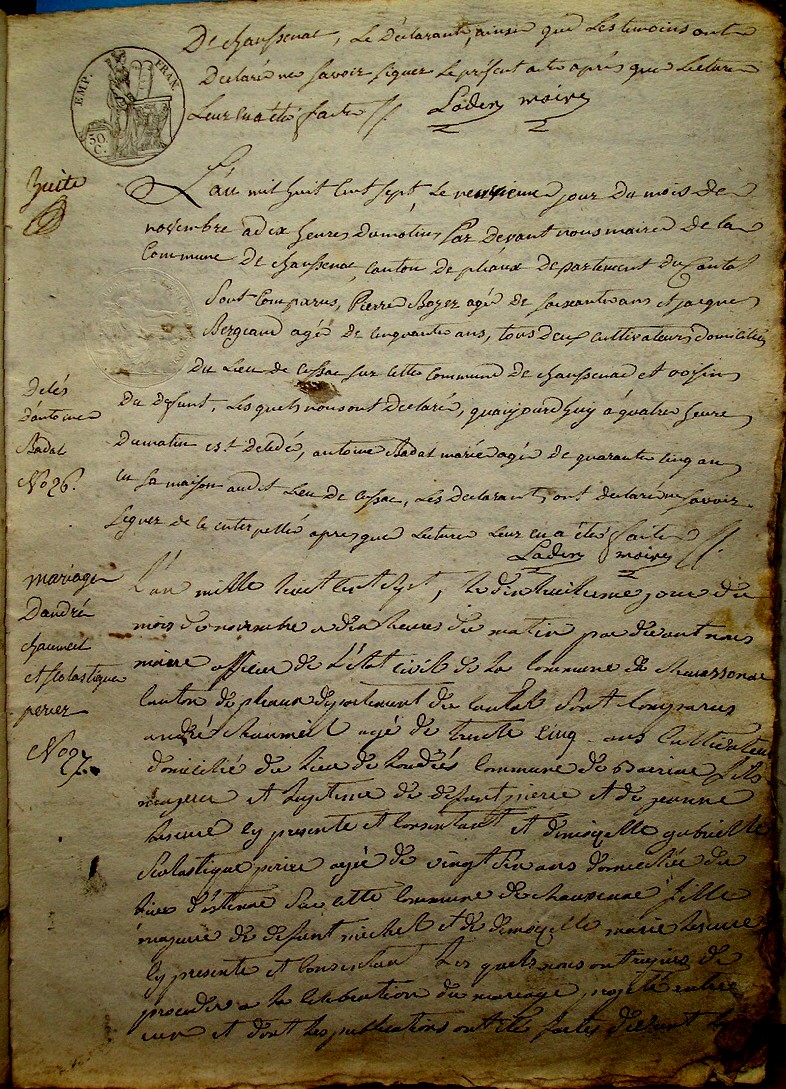 De chaussenac, Le Déclarant, ainsi que Les temoins ont
Déclaré ne savoir signer Le présent acte après que Lecture
Leur en a été faite
Laden maire
EMP. FRAN
50 C.
huite
L'an mil huit cent sept, Le neuvieme jour du mois de
novembre a dix heures du matin, Par Devant nous maire de la
Commune De chaussenac, canton de pleaux Departement du Cantal
Sont Comparus, Pierre Boyer agé de soixante ans et jacques
Bergeaud agé de cinquante ans, tous deux cultivateurs domiciliés
Du Lieu de cessac sur cette commune de chaussenac et voisins
Du défunt, Lesquels nous ont déclaré, qu'aujourd'huy à quatre heure
Du matin est décédé, antoine Badal marié agé de quarante cinq an
en sa maison audit Lieu de cessac, Les Declarant, ont déclaré ne savoir
signer de ce enterpellé après que Lecture Leur en a été faite
Laden maire
Décés
D'antoine
Badal
No 26.
mariage
D'andré
chaumeil
et scolastique
perier
No 27.
L'an mille huit cent sept, le dix huitieme jour du
mois de novembre a dix heures du matin par devant nous
maire officier de L'état civil de la Commune de chaussenac
Canton de pleaux departement du cantal sont Comparus
andré chaumeil agé de trente Cinq ans Cultivateur
domicilié du lieu de Commune de Barriac fils
majeur et legitime de defunt pierre et de jeanne
Lescure cy presente et Consentant et demoiselle gabrielle
Scolastique perier agée de vingt six ans domiciliée du
lieu d' sur cette Commune de chaussenac fille
majeure de defunt michel et de demoiselle marie Lescure
cy presente et Consentant Les quels nous ont requis de
proceder a la Celebration du mariage projetté entre
eux et dont les publications ont été faites devant la